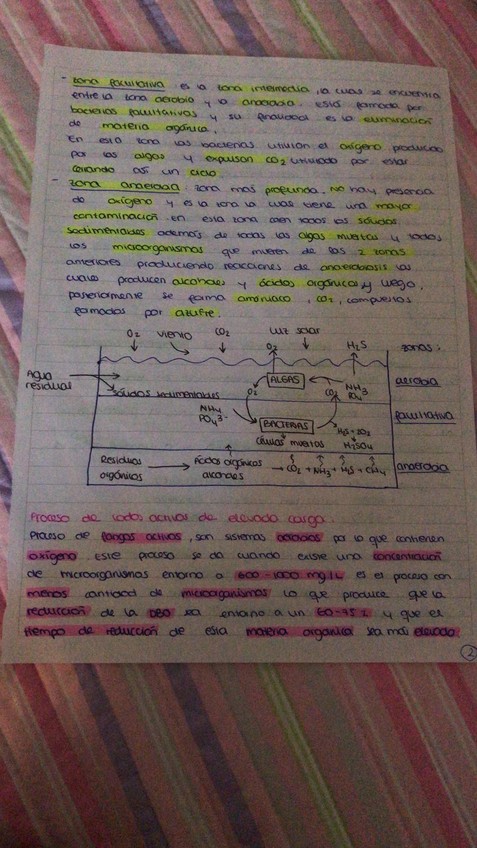 - zona facultativa es la zona intermedia, la cual se encuentra
entre la zona aerobia y la anaerobia. está formada por
bacterias facultativas y su finalidad es la eliminación
de materia orgánica.
En esta zona las bacterias utilizan el oxígeno producido
por las algas y expulsan CO2 utilizado por estas
creando así un ciclo
- zona anaerobia. zona mas profunda. No hay presencia
de oxígeno y es la zona la cual tiene una mayor
contaminación. en esta zona caen todos los sólidos
sedimentables además de todas las algas muertas y todos
los microorganismos que mueren de las 2 zonas
anteriores produciendo reacciones de anaerobiosis las
cuales producen alcoholes y ácidos orgánicos y luego,
posteriormente se forma amoniaco, CO2, compuestos
formados por azufre.
O2 viento CO2 luz solar
O2 H2S zonas:
Agua
residual
ALGAS
aerobia
sólidos sedimentables O2 CO2 NH3
PO4
NH4
PO4 3-
BACTERIAS
facultativa
células muertas
H2S + 2O2
H2SO4
Residuos
orgánicos
Ácidos orgánicos
alcoholes
CO2 + NH3 + H2S + CH4
anaerobia
Proceso de lodos activos de elevada carga.
Proceso de fangos activos, son sistemas aerobios por lo que contienen
oxígeno. este proceso se da cuando existe una concentración
de microorganismos entorno a 600-1000 mg/L es el proceso con
menos cantidad de microorganismos lo que produce que la
reducción de la DBO sea entorno a un 60-75% y que el
tiempo de reducción de esta materia orgánica sea más elevado.
2